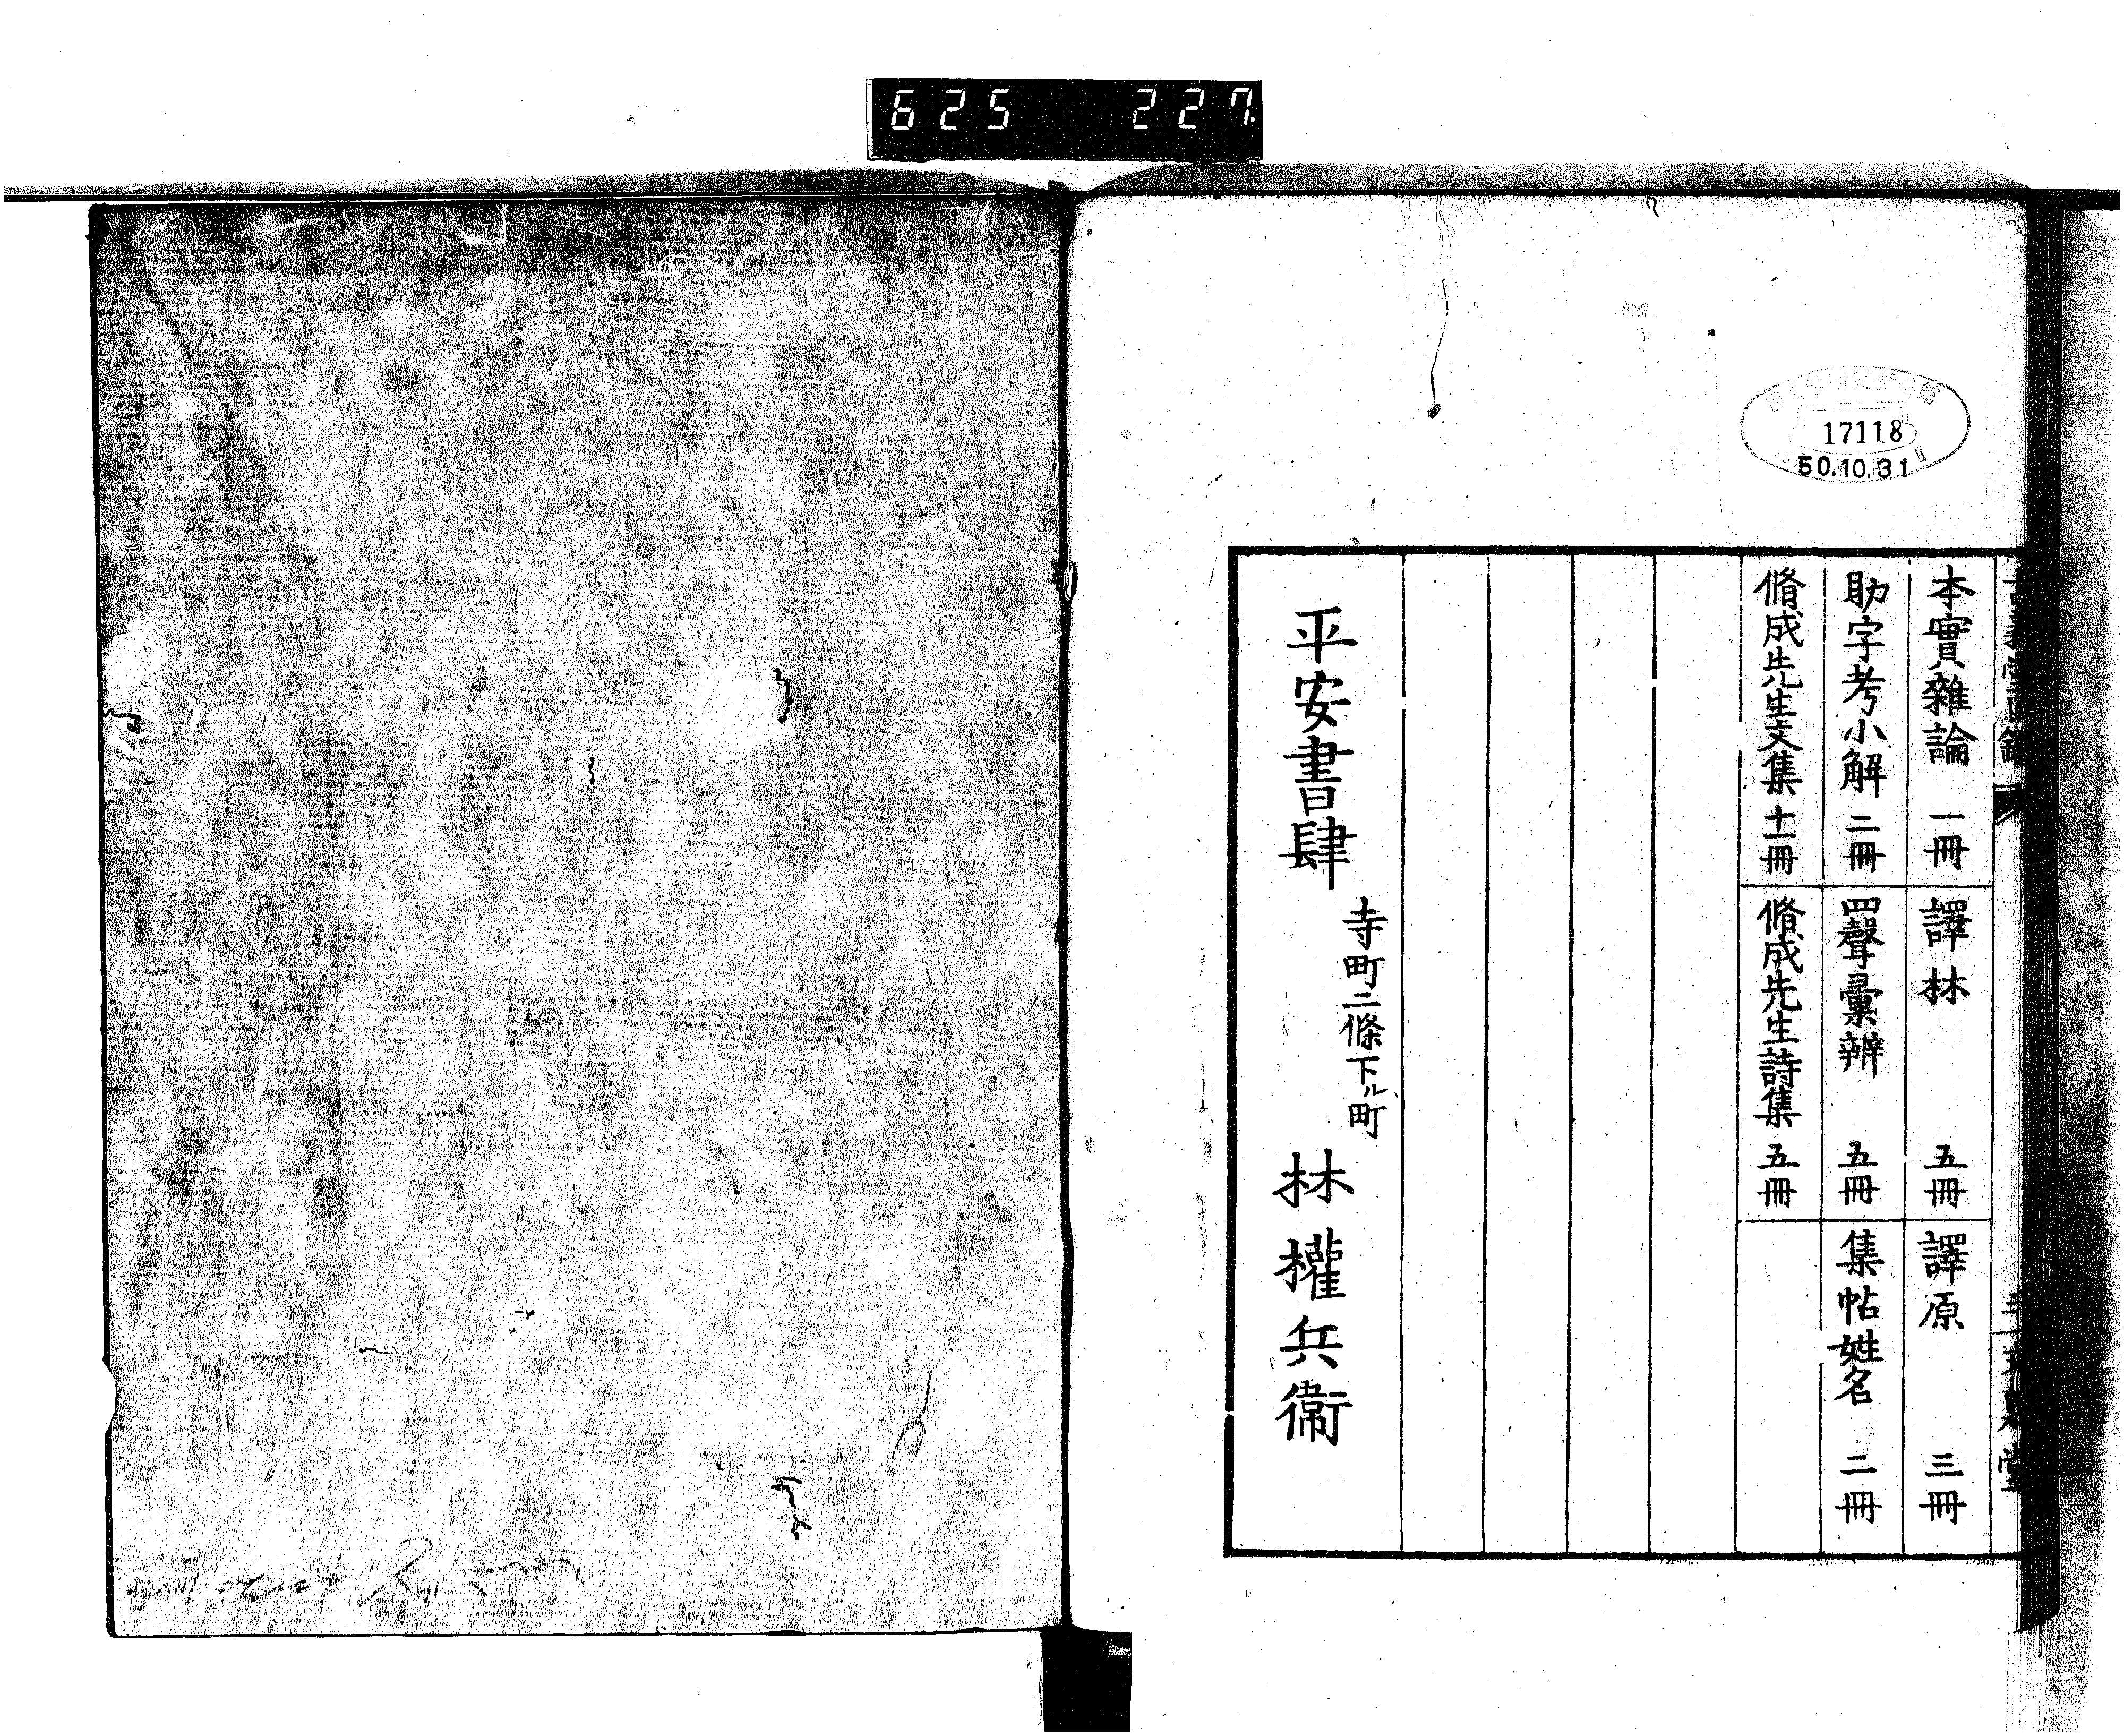 625 227.
17118
50.10.31
本實雜論 一冊
譯林 五冊
譯原 三冊
助字考小解 二冊
四聲彙辨 五冊
集帖姓名 二冊
脩成先生文集 十一冊
脩成先生詩集 五冊
平安書肆
寺町二條下ル町
林權兵衞